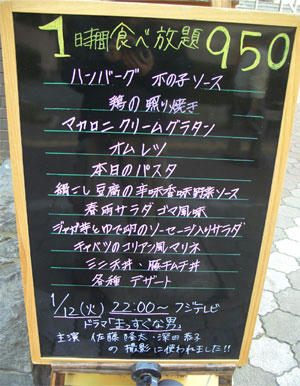 1時間食べ放題950
ハンバーグ 木の子ソース
鶏の照り焼き
マカロニクリームグラタン
オムレツ
本日のパスタ
絹ごし豆腐の辛味香味野菜ソース
春雨サラダゴマ風味
ジャガ芋とゆで卵のソーセージ入りサラダ
キャベツのコリアン風マリネ
ミニ天丼・豚キムチ丼
各種 デザート
1/12(火) 22:00〜フジテレビ
ドラマ「まっすぐな男」
主演 佐藤隆太・深田恭子
の撮影に使われました!!